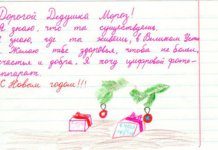 Дорогой Дедушка Мороз!
Я знаю, что ты существуешь.
Я знаю, где ты живёшь, в Великом Устюге.
Желаю тебе здоровья, чтобы не болел,
счастья и добра. Я хочу цифровой фото-
аппарат.
С Новым годом!!!